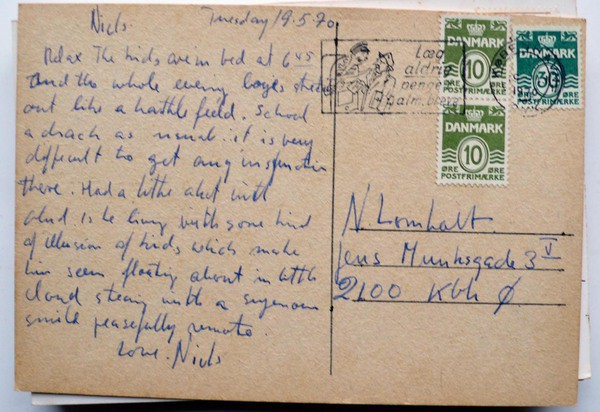 Niels. Tuesday 19.5.70
Relax The kids are in bed at 6 45
and the whole evening
out like a battlefield. School
a drach as usual. it is very
difficult to get any inspiration
there. Had a litle chat with
is he living with some kind
of illusion of kids which make
him seem floating about in little
cloud steaming with a
smile peasefully remote.
Love. Niels
Læg
aldrig
penge
i alm. breve
DANMARK
10
ØRE ØRE
POSTFRIMÆRKE
DANMARK
10
ØRE ØRE
POSTFRIMÆRKE
DANMARK
30
ØRE ØRE
POSTFRIMÆRKE
N Lomholt.
Jens Munksgade 3 V
2100 Kbh Ø